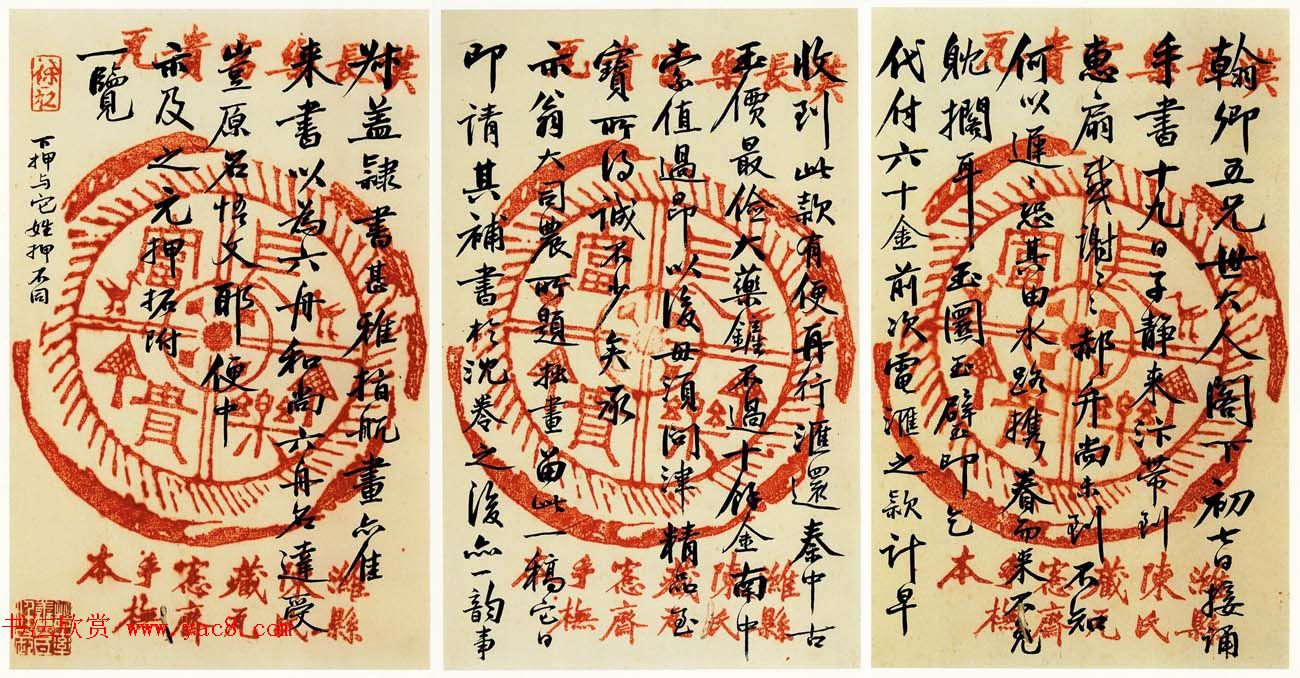 翰卿五兄世大人閣下初七日接誦
手書十九日子静来汴帶到
惠扇感謝〻郝升尚未到不知
何以遲〻恐其由水路携眷而来不免
躭擱耳玉圜玉璧即乞
代付六十金前次電滙之款計早
收到此款有便再行滙還秦中古
玉價最儉大藥鏟不過十餘金南中
索值過昂以後毋須問津精品至
寶所得誠不少矣承
示翁大司農所題拙畫留此一稿它日
即請其補書於沈卷之後亦一韵事
叔盖隷書甚雅指舫畫亦佳
来書以為六舟和尚六舟名達受
豈原名悟文耶便中
示及之元押拓附
一覽
下押与它姓押不同
漢長樂富貴瓦
長樂富貴
濰縣陳氏藏瓦
愙齋手橅本
书法欣赏 www.yac8.com